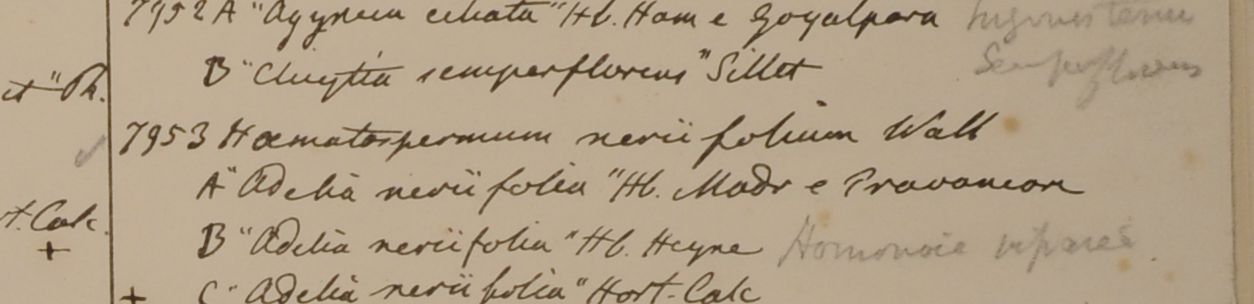 7952 A "Agyneia ciliata" Hb. Ham e Goyalpara
B "Cluytia semperflorens" Sillet Semperflorens
et "Rh.
7953 Hæmatospermum neriifolium Wall
A "Adelia neriifolia" Hb. Madr e Travancore
t. Calc.
B "Adelia neriifolia" Hb. Heyne Homonoia riparia
+
+ C "Adelia neriifolia" Hort. Calc